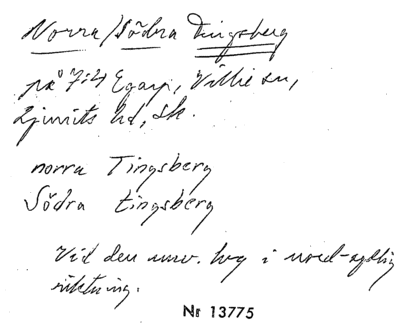 Norra/Södra Tingsberg
på 7:4 Egarp, Villie sn,
Ljunits hd, Sk.
norra Tingsberg
Södra tingsberg
Vid den nuv. byg i nord-sydlig
riktning.
Nr 13775